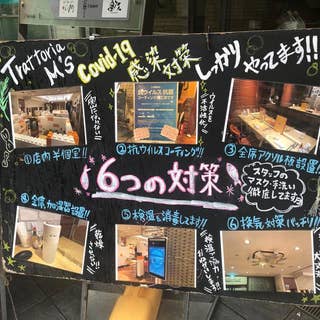 Trattoria M's Covid19 感染対策 しっかりやってます!!
ウイルスを不活性化!
①店内半個室!!
②抗ウイルスコーティング!!
③全席アクリル板設置!!
6つの対策
スタッフのマスク・手洗い徹底してます
④全席加湿器設置!!
⑤検温&消毒してます!!
⑥換気対策バッチリ!!
乾燥させない